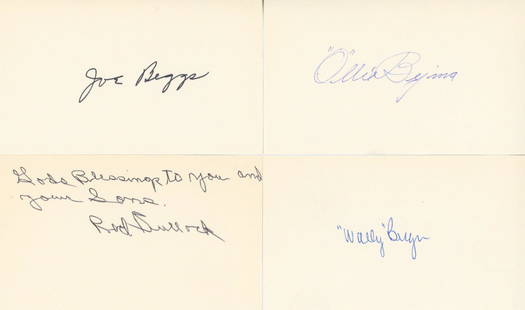 Joe Beggs
"Ollie" Bejma
Gods Blessings to you and
your Sons.
Red Bullock
"Wally" Berger